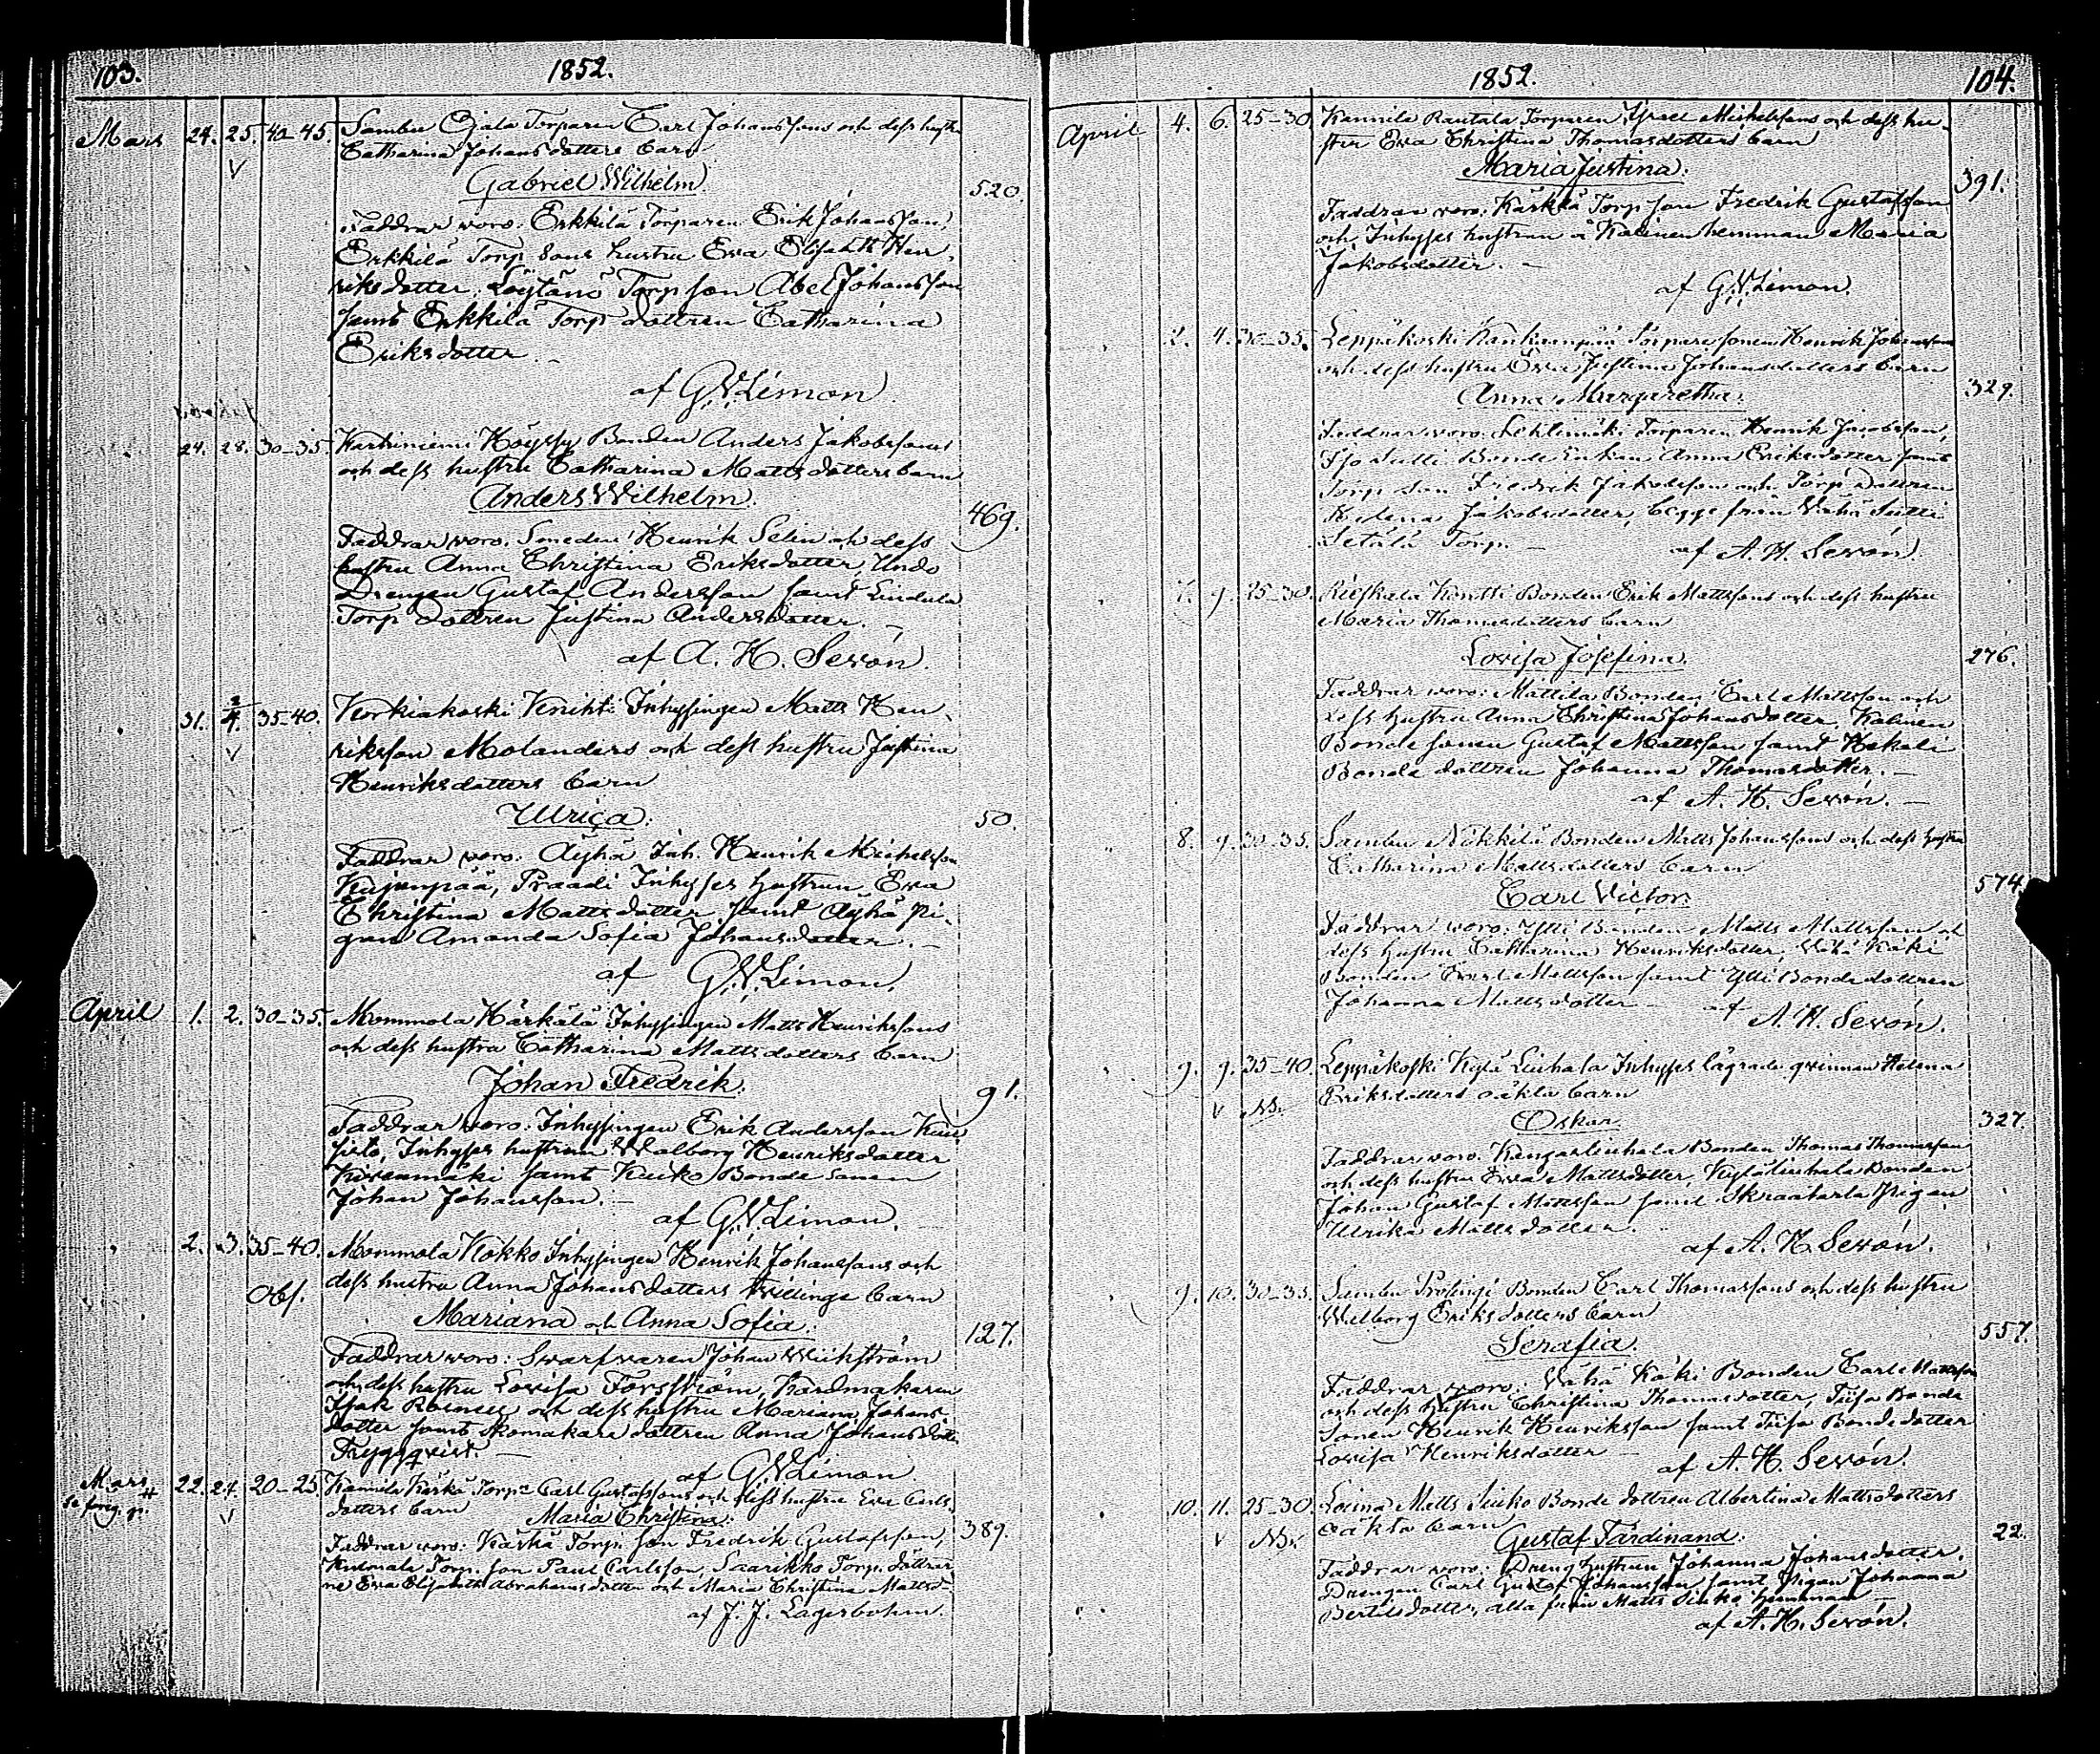 103.
1852.
Mars 24. 25. 40-45. Sambu Ojala Torparen Carl Johanssons och dess hustru
Catharina Johansdotters barn
Gabriel Wilhelm.
520.
Faddrar woro: Erkkilä Torparen Erik Johansson,
Erkkilä Torp Sons hustru Eva Elisabeth Hen-
riksdotter, Löytänö Torp son Abel Johansson
samt Erkkilä Torp dottren Catharina
Eriksdotter. —
af G.W. Limon.
24. 28. 30-35. Höyssy Bonden Anders Jakobssons
och dess hustru Catharina Mattsdotters barn
Anders Wilhelm.
469.
Faddrar woro: Smeden Henrik Selin och dess
hustru Anna Christina Eriksdotter,
Drengen Gustaf Andersson samt Lindula
Torp dottren Justina Andersdotter. —
af A. H. Sevón.
31. 2/4. 35-40. Korkiakoski Knihti Inhysingen Matts Hen-
riksson Molanders och dess hustru Justina
Henriksdotters barn
Ulrica.
50.
Faddrar woro: Äyhö Inh. Henrik Michelsson
Kujanpää, Praadi Inhyses hustrun Eva
Christina Mattsdotter samt Äyhö Pi-
gan Amanda Sofia Johansdotter. —
af G.W. Limon.
April 1. 2. 30-35. Mommola Härkälä Inhysingen Matts Henrikssons
och dess hustru Catharina Mattsdotters barn
Johan Fredrik.
91.
Faddrar woro: Inhysingen Erik Andersson Kui-
sisto, Inhyses hustrun Walborg Henriksdotter
Kivenmäki samt Keiko Bonde sonen
Johan Johansson. —
af G.W. Limon.
2. 3. 35-40. Mommola Kokko Inhysingen Henrik Johanssons och
Obs. dess hustru Anna Johansdotters Twillinge barn
Mariana och Anna Sofia.
127.
Faddrar woro: Swarfvaren Johan Wikström
och dess hustru Lovisa Forsström, Kardmakaren
Isak och dess hustru Mariana Johans-
dotter samt Skomakare dottren Anna Johansdotter
Tryggqvist. —
af G.W. Limon
Mars 22. 24. 20-25. Kannila Kärkä Torp:n Carl Gustafssons och dess hustru Eva Carls-
se föreg. p. dotters barn Maria Christina.
389.
Faddrar woro: Kärkä Torp. son Fredrik Gustafsson,
Torp. son Paul Carlsson, Saarikko Torp. döttrar-
ne Eva Elisabeth Abrahamsdotter och Maria Christina Mattsd-
af J. J. Lagerbohm.
1852.
104.
April 4. 6. 25-30. Kannila Rautala Torparen Israel Michelssons och dess hu-
stru Eva Christina Thomasdotters barn
Maria Justina.
391.
Faddrar woro: Kärkkä Torp son Fredrik Gustafsson
och Inhyses hustrun å Kalinen hemman Maria
Jakobsdotter. —
af G.W. Limon.
2. 4. 30-35. Leppäkoski Kankaanpää Torpare sonen Henrik Johanssons
och dess hustru Eva Justina Johansdotters barn
Anna Margaretha.
329.
Faddrar woro: Lehtimäki Torparen Henrik Jacobsson,
Iso Sutti Bonde Enkan Anna Eriksdotter samt
Torp son Fredrik Jakobsson och Torp dottren
Jakobsdotter, begge från Wähä Sutti
Setälä Torp. — af A. H. Sevón.
7. 9. 25-30. Rieskala Konsti Bonden Erik Mattssons och dess hustru
Maria Thomasdotters barn
Lovisa Josefina.
276.
Faddrar woro: Mattila Bonden Carl Mattsson och
dess hustru Anna Christina Johansdotter, Kalinen
Bonde sonen Gustaf Mattsson samt Kekoli
Bonde dottren Johanna Thomasdotter. —
af A. H. Sevón. —
8. 9. 30-35. Sambu Nikkilä Bonden Matts Johanssons och dess hustru
Catharina Mattsdotters barn
Carl Victor.
574.
Faddrar woro: Ylli Bonden Matts Mattsson och
dess hustru Catharina Henriksdotter, Wähä Käki
Bonden Carl Mattsson samt Ylli Bonde dottren
Johanna Mattsdotter — af
A. H. Sevón.
9. 9. 35-40. Leppäkoski Kylä Liuhala Inhyses lägrade qvinnan Helena
Eriksdotters oäkta barn
NB.
Oskar.
327.
Faddrar woro: Kangasliuhala Bonden Thomas Thomasson
och dess hustru Eva Mattsdotter, Kyläliuhala Bonden
Johan Gustaf Mattsson samt Pigan
Ulrika Mattsdotter.
af A. H. Sevón.
9. 10. 30-35. Sambu Prolingi Bonden Carl Thomassons och dess hustru
Walborg Eriksdotters barn
Serafia.
557.
Faddrar woro: Wähä Käki Bonden Carl Mattsson
och dess hustru Christina Thomasdotter, Tiisa Bonde
Sonen Henrik Henriksson samt Tiisa Bonde dotter
Lovisa Henriksdotter —
af A. H. Sevón.
10. 11. 25-30. Loima Matts Siuko Bonde dottren Albertina Mattsdotters
NB. oäkta barn
Gustaf Färdinand.
22.
Faddrar woro: Dreng hustrun Johanna Johansdotter,
Drengen Carl Gustaf Johansson samt Pigan Johanna
Bertilsdotter, alla från Matts Siuko hemman —
af A. H. Sevón.